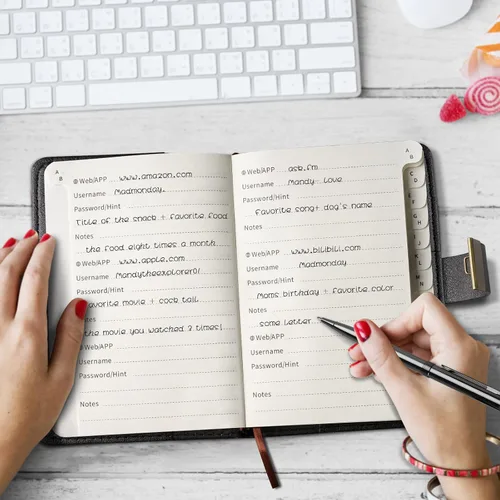 A
B
@Web/APP www.amazon.com
Username Madmonday.
Password/Hint
Title of the snack + favorite food
Notes
the food eight times a month
@Web/APP www.apple.com
Username Mandytheexplorer01
Password/Hint
favorite movie + cock tail
Notes
the movie you watched 3 times!
@Web/APP
Username
Password/Hint
Notes
@Web/APP ask.fm
Username Mandy- love
Password/Hint
favorite song+ dog's name
Notes
@Web/APP www.bilibili.com
Username Madmonday
Password/Hint
Moms birthday + favorite color
Notes
some letter
@Web/APP
Username
Password/Hint
Notes
A
B
C
D
E
F
G
H